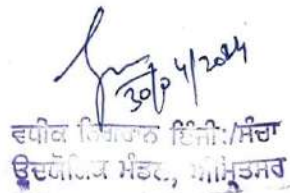 30/04/2024
ਵਧੀਕ ਨਿਗਰਾਨ ਇੰਜੀ:/ਸੰਚਾ
ਉਦਯੋਗਿਕ ਮੰਡਲ, ਅੰਮ੍ਰਿਤਸਰ